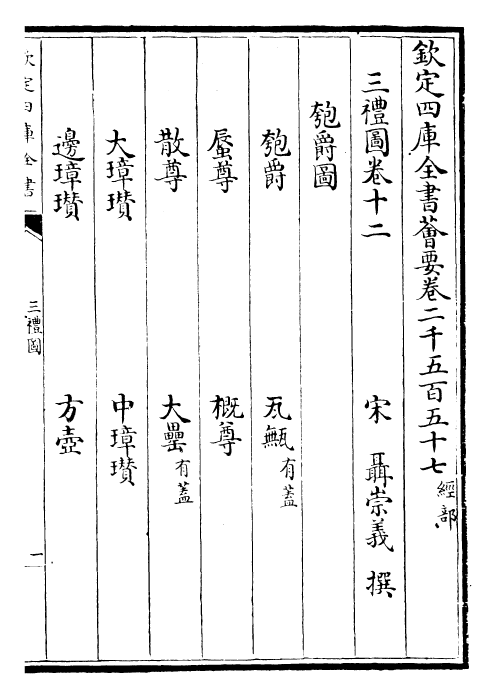 欽定四庫全書薈要卷二千五百五十七 經部
三禮圖卷十二
宋 聶崇義 撰
匏爵圖
匏爵 瓦甒有蓋
蜃尊 概尊
散尊 大罍有蓋
大璋瓚 中璋瓚
邊璋瓚 方壺
欽定四庫全書
三禮圖
一